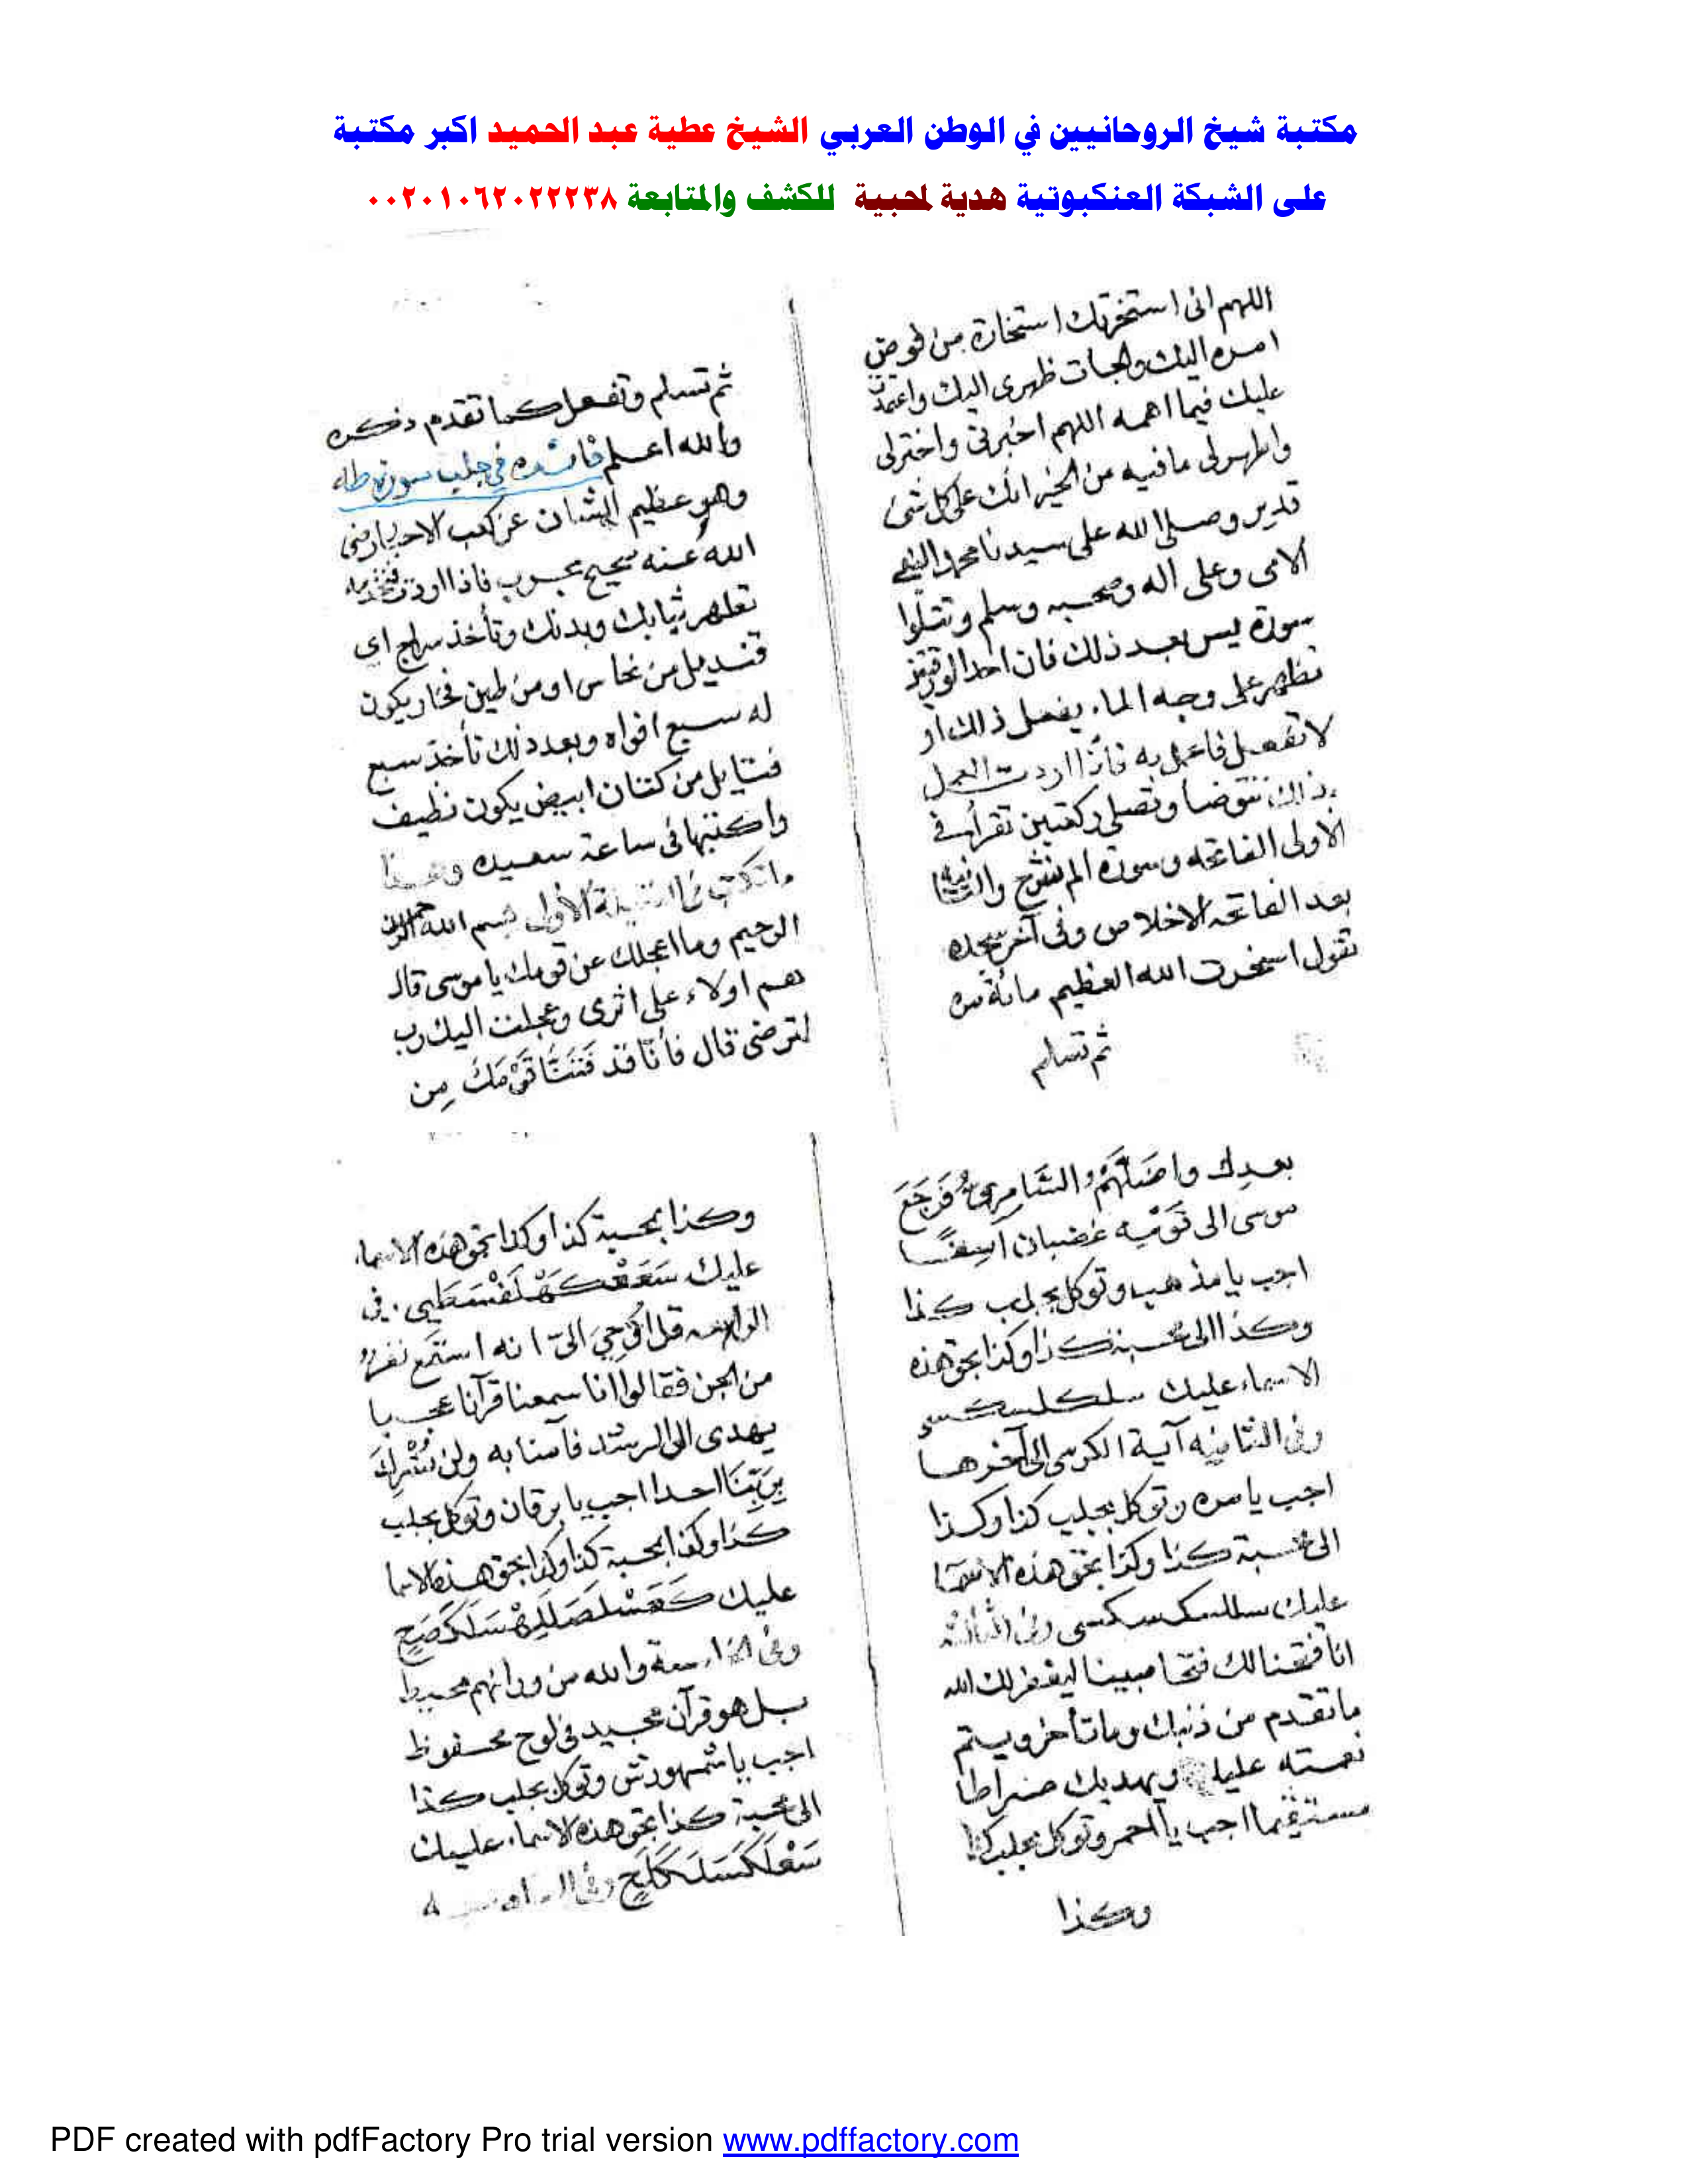 مكتبة شيخ الروحانيين في الوطن العربي الشيخ عطية عبد الحميد اكبر مكتبة
على الشبكة العنكبوتية هدية لمحبية للكشف والمتابعة ٠٠٢٠١٠٦٢٠٢٢٢٣٨
اللهم انى استخرتك استخارة من فوض
امره اليك والجات ظهرى اليك واعتمدت
عليك فيما اهمه اللهم اخبرنى واخترلى
واظهرلى مافيه من الخير انك على كل شئ
قدير وصلى الله على سيدنا محمد النبى
الامى وعلى اله وصحبه وسلم وتتلوا
سورة يس بعد ذلك فان احد الورقتين
تظهر على وجه الماء يفعل ذالك او
لا تفعل فاعمل به فاذا اردت العمل
بذالك تتوضا وتصلى ركعتين تقرأ فى
الاولى الفاتحه وسورة الم نشرح والثانيه
بعد الفاتحه الاخلاص وفى آخر سجده
تقول استخرت الله العظيم مائة مره
ثم تسلم
ثم تسلم وتفعل كما تقدم ذكره
والله اعلم فائده فى جلب سورة طه
وهو عظيم الشان عن كعب الاحبار رضى
الله عنه صحيح مجرب فاذا اردت
تطهر ثيابك وبدنك وتأخذ سراج اى
قنديل من نحاس او من طين فخار يكون
له سبع افواه وبعد ذلك تأخذ سبع
فتايل من كتان ابيض يكون نظيف
واكتبها فى ساعة سعيده وهذا
ما تكتب فى الفتيلة الأولى بسم الله الرحمن
الرحيم وما اعجلك عن قومك يا موسى قال
هم اولاء على اثرى وعجلت اليك رب
لترضى قال فأنا قد فَتَنَّا قَوْمَكَ مِن
بعدك واضَلَّهُمُ السَّامِرِىُّ فَرَجَعَ
موسى الى قَوْمِه غضبان اسِفًا
اجب يا مذهب وتوكل بجلب كذا
وكذا الى محبة كذا وكذا بحق هذه
الاسماء عليك
وفى الثانيه آية الكرسى الى آخرها
اجب يا مره وتوكل بجلب كذا وكذا
الى محبة كذا وكذا بحق هذه الاسما
عليك وفى الثالثه
انا فتحنا لك فتحا مبينا ليغفر لك الله
ما تقدم من ذنبك وما تأخر ويتم
نعمته عليك ويهديك صراطا
مستقيما اجب يا احمر وتوكل بجلب كذا
وكذا
وكذا بمحبة كذا وكذا بحق هذه الاسماء
عليك فى
الرابعه قل اُوحِىَ الىّ انه استمع نفرٌ
من الجن فقالوا انا سمعنا قرآنا عجبا
يهدى الى الرشد فآمنا به ولن نُشْرِكَ
بِرَبِّنَا احدا اجب يا برقان وتوكل بجلب
كذا وكذا بمحبة كذا وكذا بحق هذه الاسما
عليك
وفى والله من ورائهم محيط
بل هو قرآن مجيد فى لوح محفوظ
اجب يا شمهورش وتوكل بجلب كذا
الى محبة كذا بحق هذه الاسماء عليك
وفى السادسه
PDF created with pdfFactory Pro trial version www.pdffactory.com